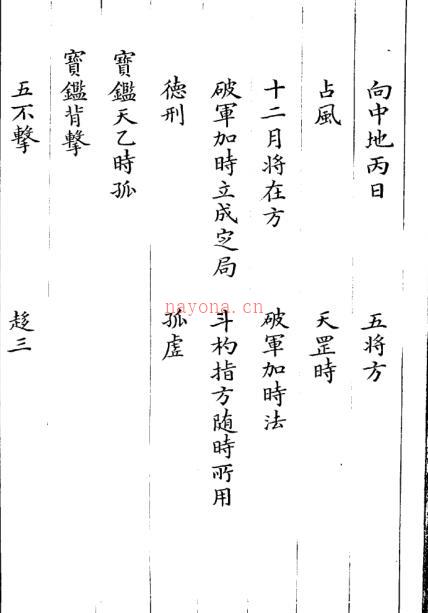 向中地丙日 五将方
占風 天罡時
十二月将在方 破軍加時法
破軍加時立成定局 斗杓指方随時所用
德刑 孤虚
寶鑑天乙時孤
寶鑑背擊
五不擊 趍三
nayona.cn